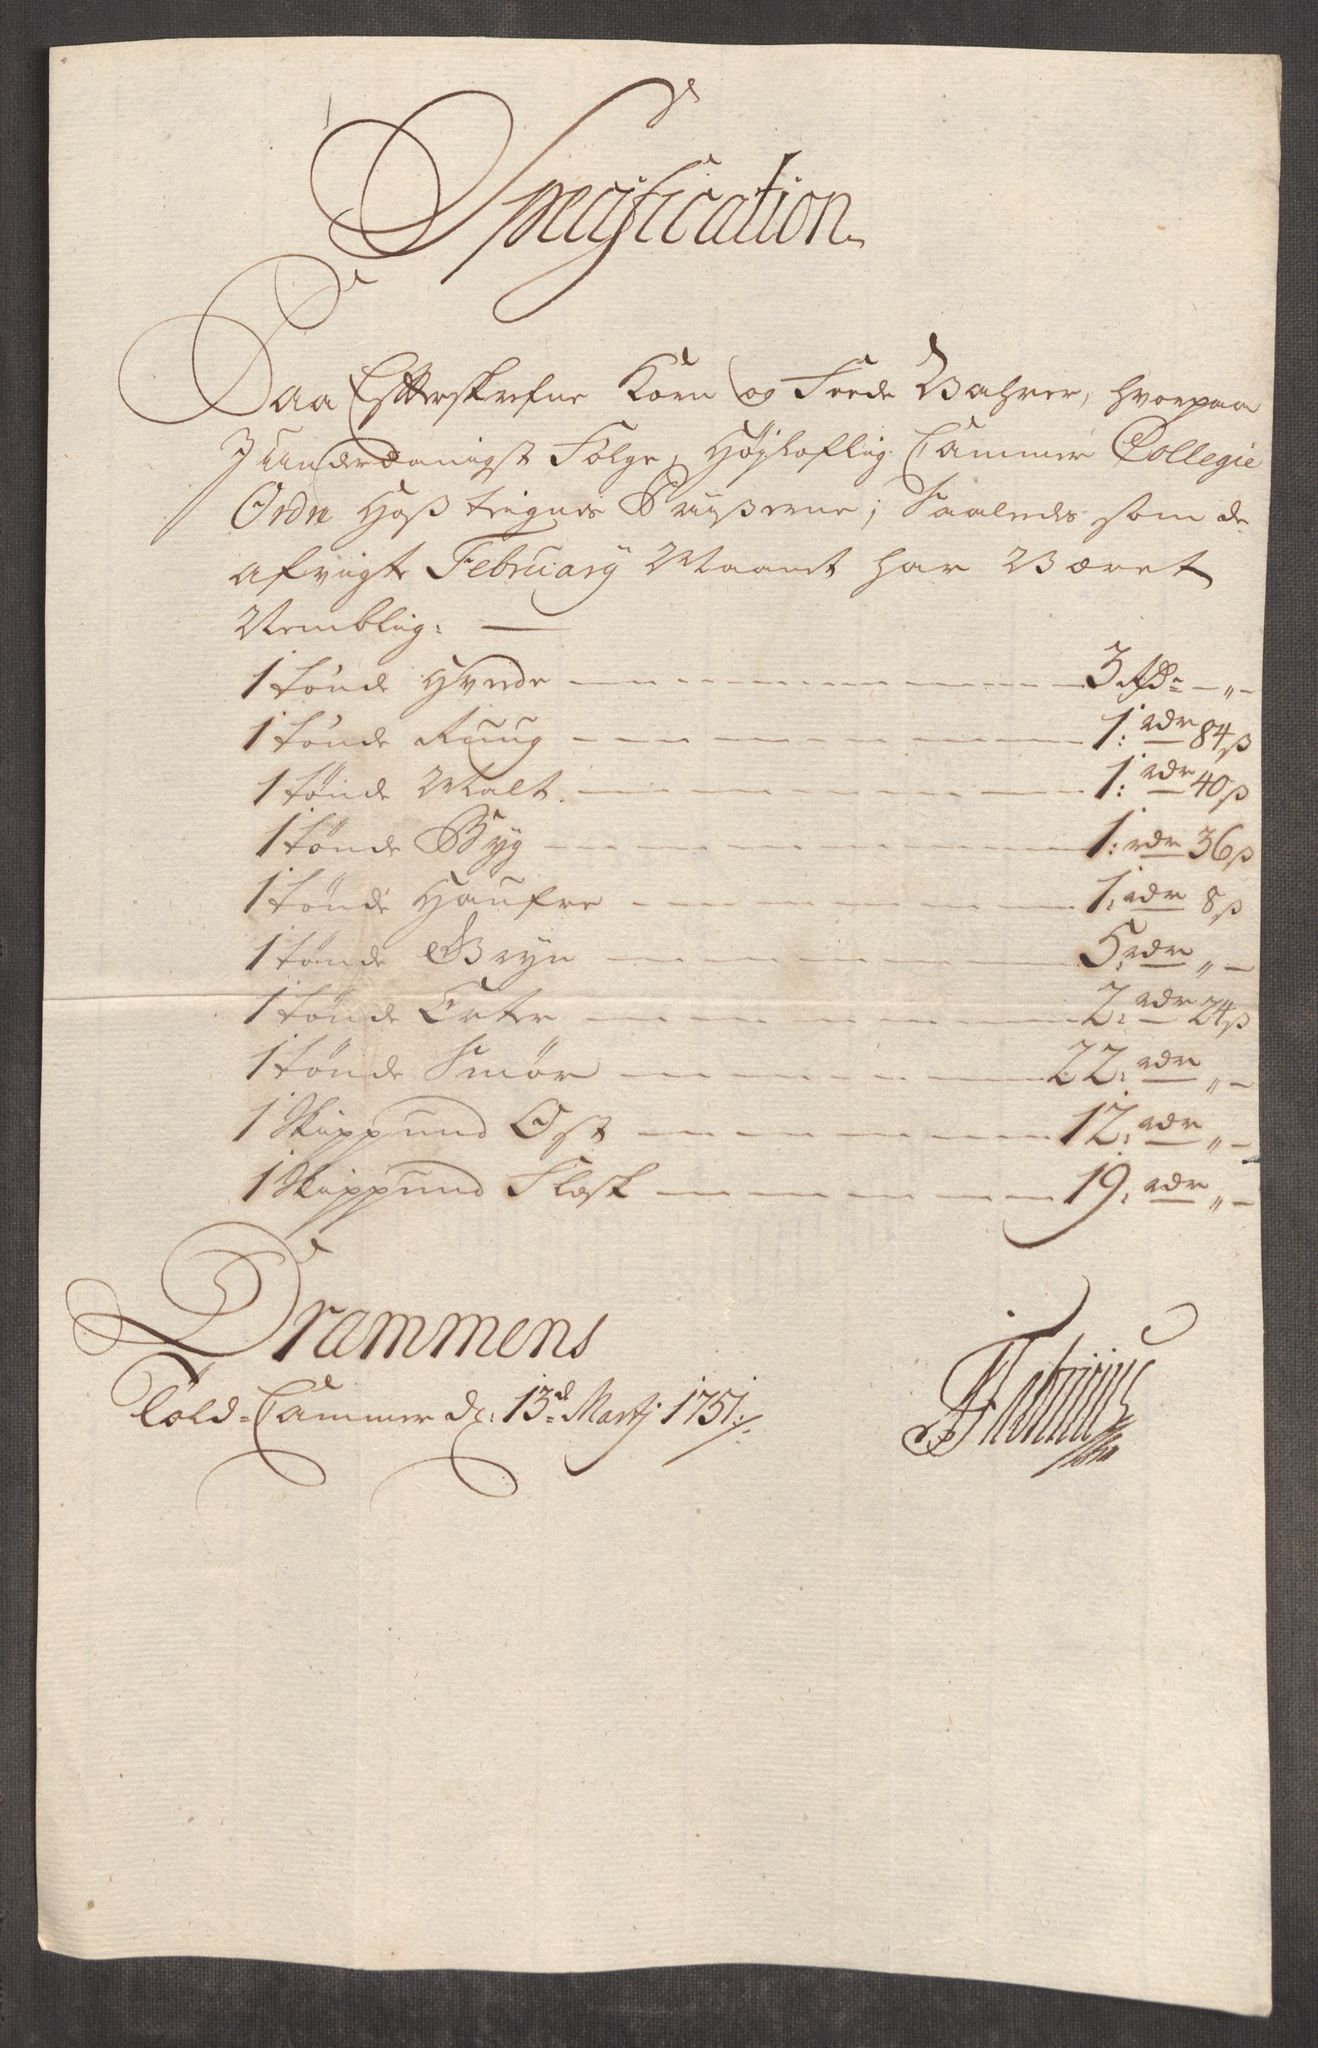 Specification
Paa Effterskrefne Korn og Feede Vahrer, hvorpaa
I Underdanigst Følge, Høyloflig Cammer Collegie
Ordre Hoß tegnes Priißerne; Saaledes som de
afvigte February Maanet har Været
Nemblig: —
1 tønde Hvede — 3 Rd: — „ —
1 tønde Ruug — 1: rdr 84 ß
1 tønde Malt — 1: rdr 40 ß
1 tønde Byg — 1: rdr 36 ß
1 tønde Haufre — 1: rdr 8 ß
1 tønde Gryn — 5: rdr „ —
1 tønde Erter — 2: rdr 24 ß
1 tønde Smør — 22: rdr „ —
1 Skippund Ost — 12: rdr „ —
1 Skippund Flesk — 19: rdr „ —
Drammens
Told-Cammer d: 13d Martj 1751